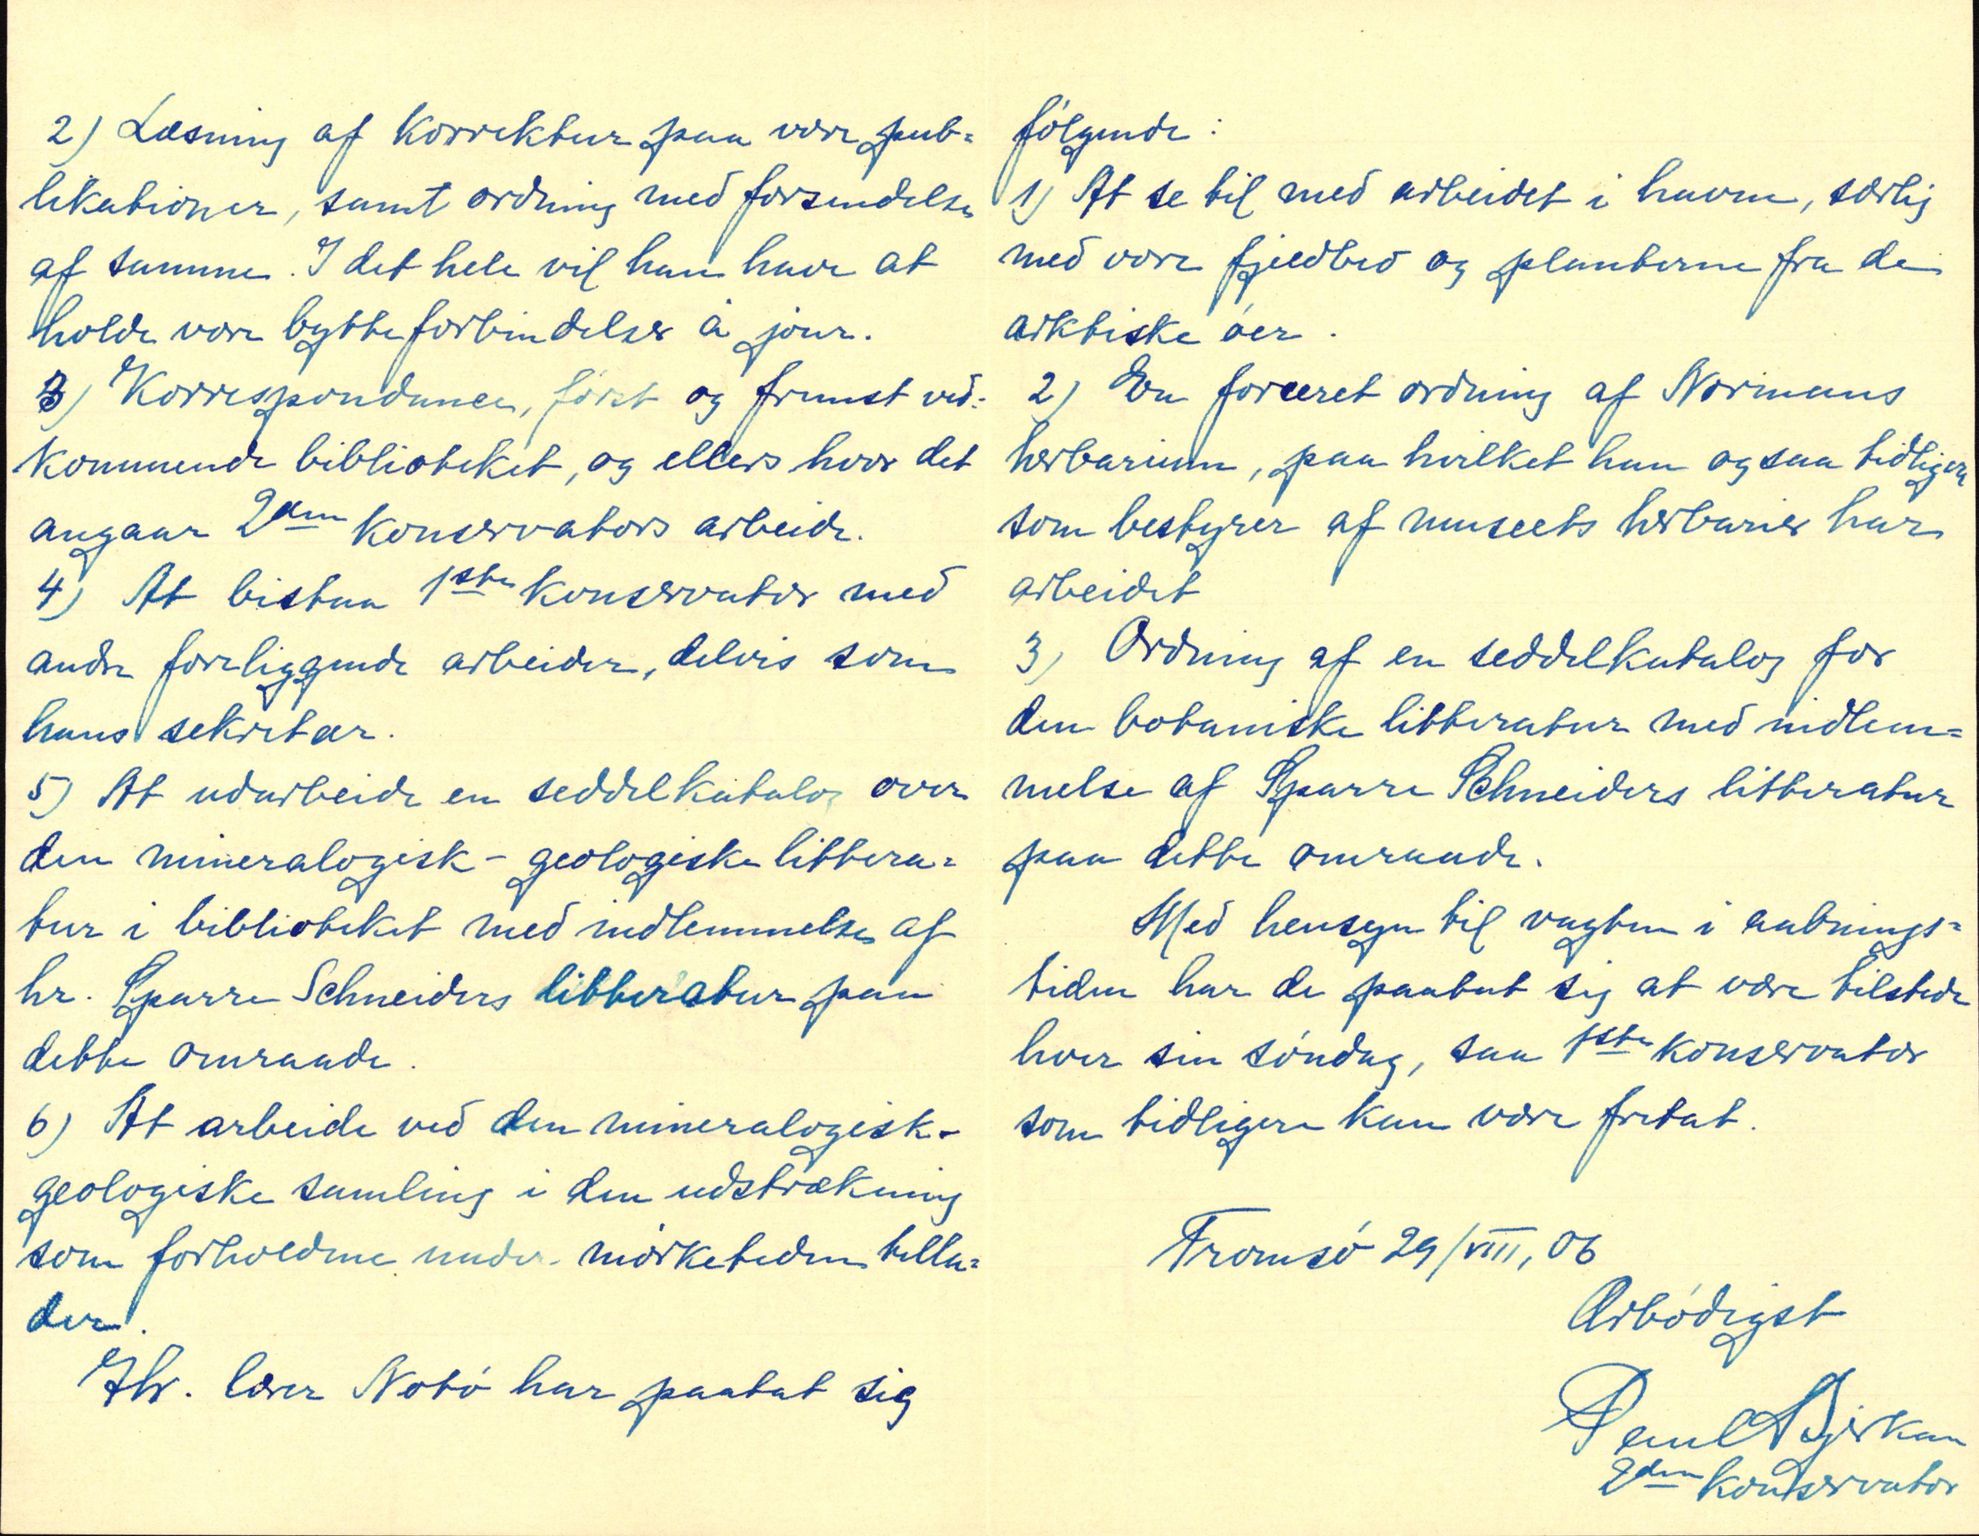 2) Læsning af korrektur paa vore pub=
likationer, samt ordning med forsendelse
af samme. I det hele vil han have at
holde vore bytteforbindelser à jour.
3) Korrespondance, først og fremst ved=
kommende biblioteket, og ellers hvor det
angaar 2den konservators arbeide.
4) At bistaa 1ste konservator med
andre foreliggende arbeider, delvis som
hans sekretær.
5) At udarbeide en seddelkatalog over
den mineralogisk-geologiske littera=
tur i biblioteket med indlemmelse af
hr. Sparre Schneiders litteratur paa
dette omraade.
6) At arbeide ved den mineralogisk-
geologiske samling i den udstrækning
som forholdene under mørketiden tilla=
der.
Hr. lærer Notø har paatat sig
følgende:
1) At se til med arbeidet i haven, særlig
med vore fjeldbed og planterne fra de
arktiske øer.
2) En forceret ordning af Normans
herbarium, paa hvilket han ogsaa tidligere
som bestyrer af museets herbarier har
arbeidet
3) Ordning af en seddelkatalog for
den botaniske litteratur med indlem=
melse af Sparre Schneiders litteratur
paa dette omraade.
Med hensyn til vagten i aabnings=
tiden har de paatat sig at være tilstede
hver sin søndag, saa 1ste konservator
som tidligere kan være fritat.
Tromsø 29/VIII, 06
Ærbødigst
Paul Bjerkan
2den konservator